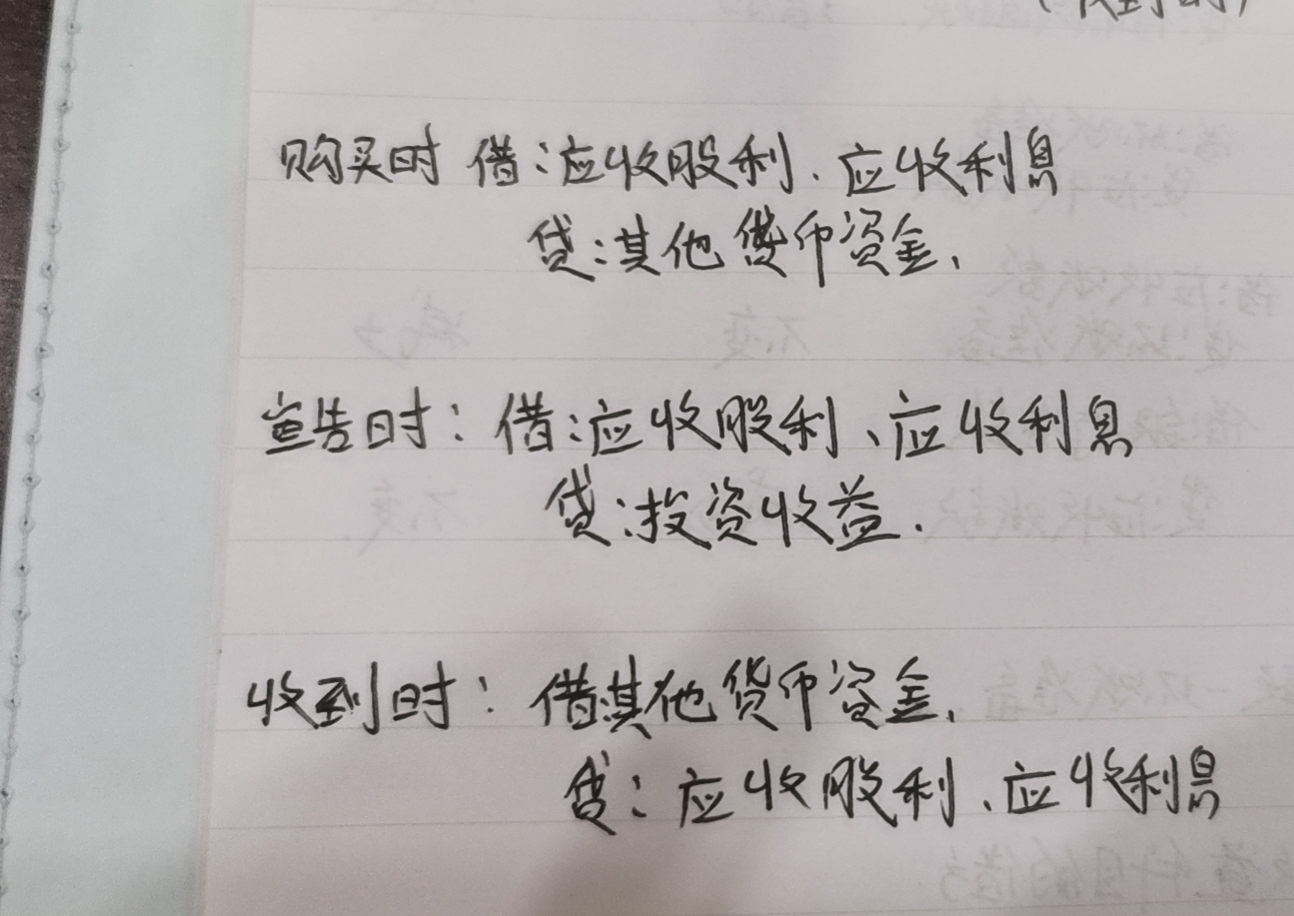 购买时 借:应收股利、应收利息
贷:其他货币资金、
宣告时:借:应收股利、应收利息
贷:投资收益.
收到时:借:其他货币资金、
贷:应收股利、应收利息